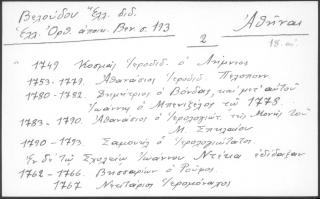 Βελούδου Ἑλλ. διδ.
Ἑλλ. Ὀρθ. ἀποικ. Βεν. σ. 193
Ἀθῆναι
2
18. αἰ.
" 1749 Κοσμᾶς Ἱεροδιδ. ὁ Λήμνιος
1753-1779. Ἀθανάσιος Ἱεροδιδ. Πελοπονν.
1780-1782. Δημήτριος ὁ Βόνδας καὶ μετ' αὐτοῦ
Ἰωάννης ὁ Μπενιζέλος τῷ 1778.
1783-1790. Ἀθανάσιος ὁ Ἱερολογιώτ. τῆς Μονῆς τοῦ
Μ. Σπηλαίου
1790-1793. Σαμουὴλ ὁ Ἱερολογιώτατος
Ἐν δὲ τῷ Σχολείῳ Ἰωάννου Ντέκα ἐδίδαξαν
1762-1766. Βησσαρίων ὁ Ροῦφος
1767 Νεκτάριος Ἱερομόναχος